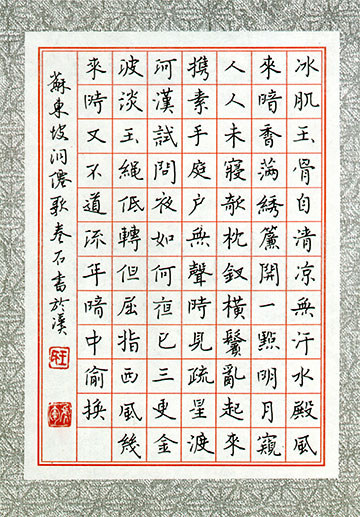 冰肌玉骨自清涼無汗水殿風
來暗香滿綉簾開一點明月窺
人人未寢欹枕釵橫鬢亂起來
携素手庭户無聲時見疏星渡
河漢試問夜如何亱已三更金
波淡玉繩低轉但屈指西風幾
來時又不道流年暗中偷換
蘇東坡洞僊歌卷石書於溪